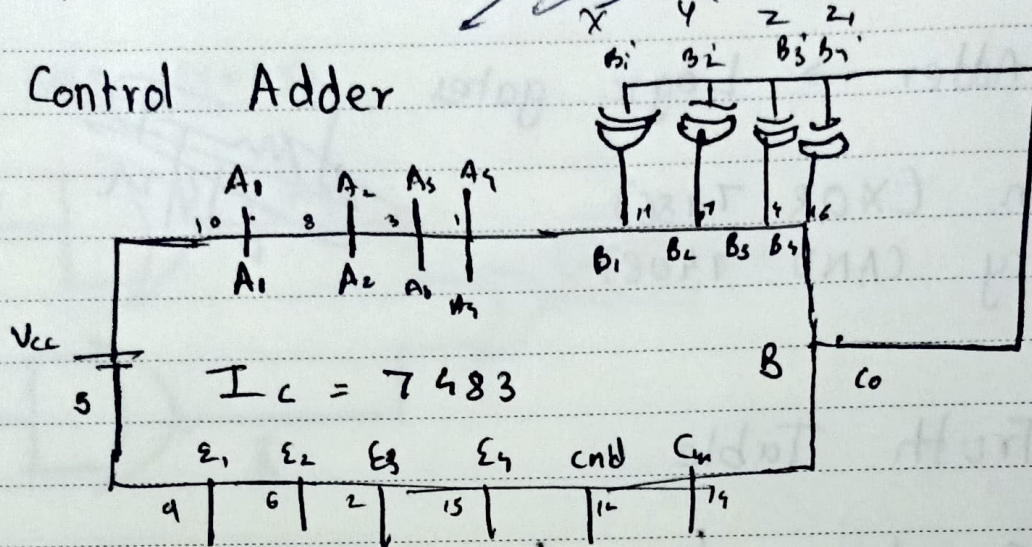 X Y Z Z1
B1' B2' B3' B4'
Control Adder
A1 A2 A3 A4
10 8 3 1 11 7 4 16
B1 B2 B3 B4
A1 A2 A3 A4
Vcc
B
5
Ic = 7483
Co
Σ1 Σ2 Σ3 Σ4 Cin
9 6 2 15 12 14